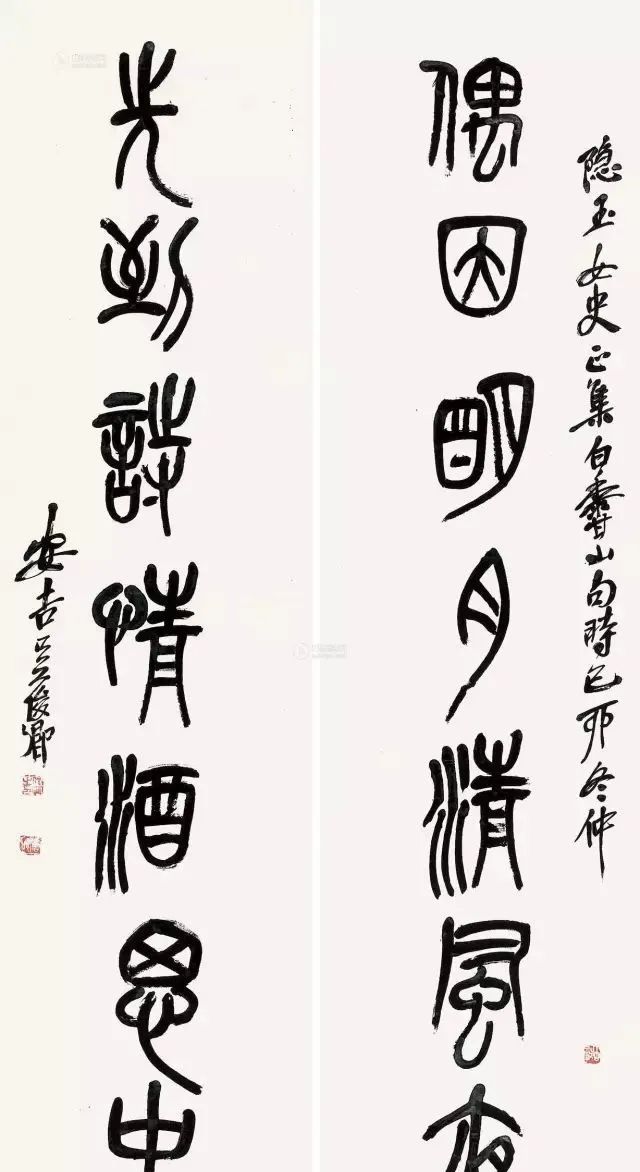 隐玉女史正集白香山句時己卯冬仲
偶因明月清風夜
先到詩情酒思中
安吉吳俊卿